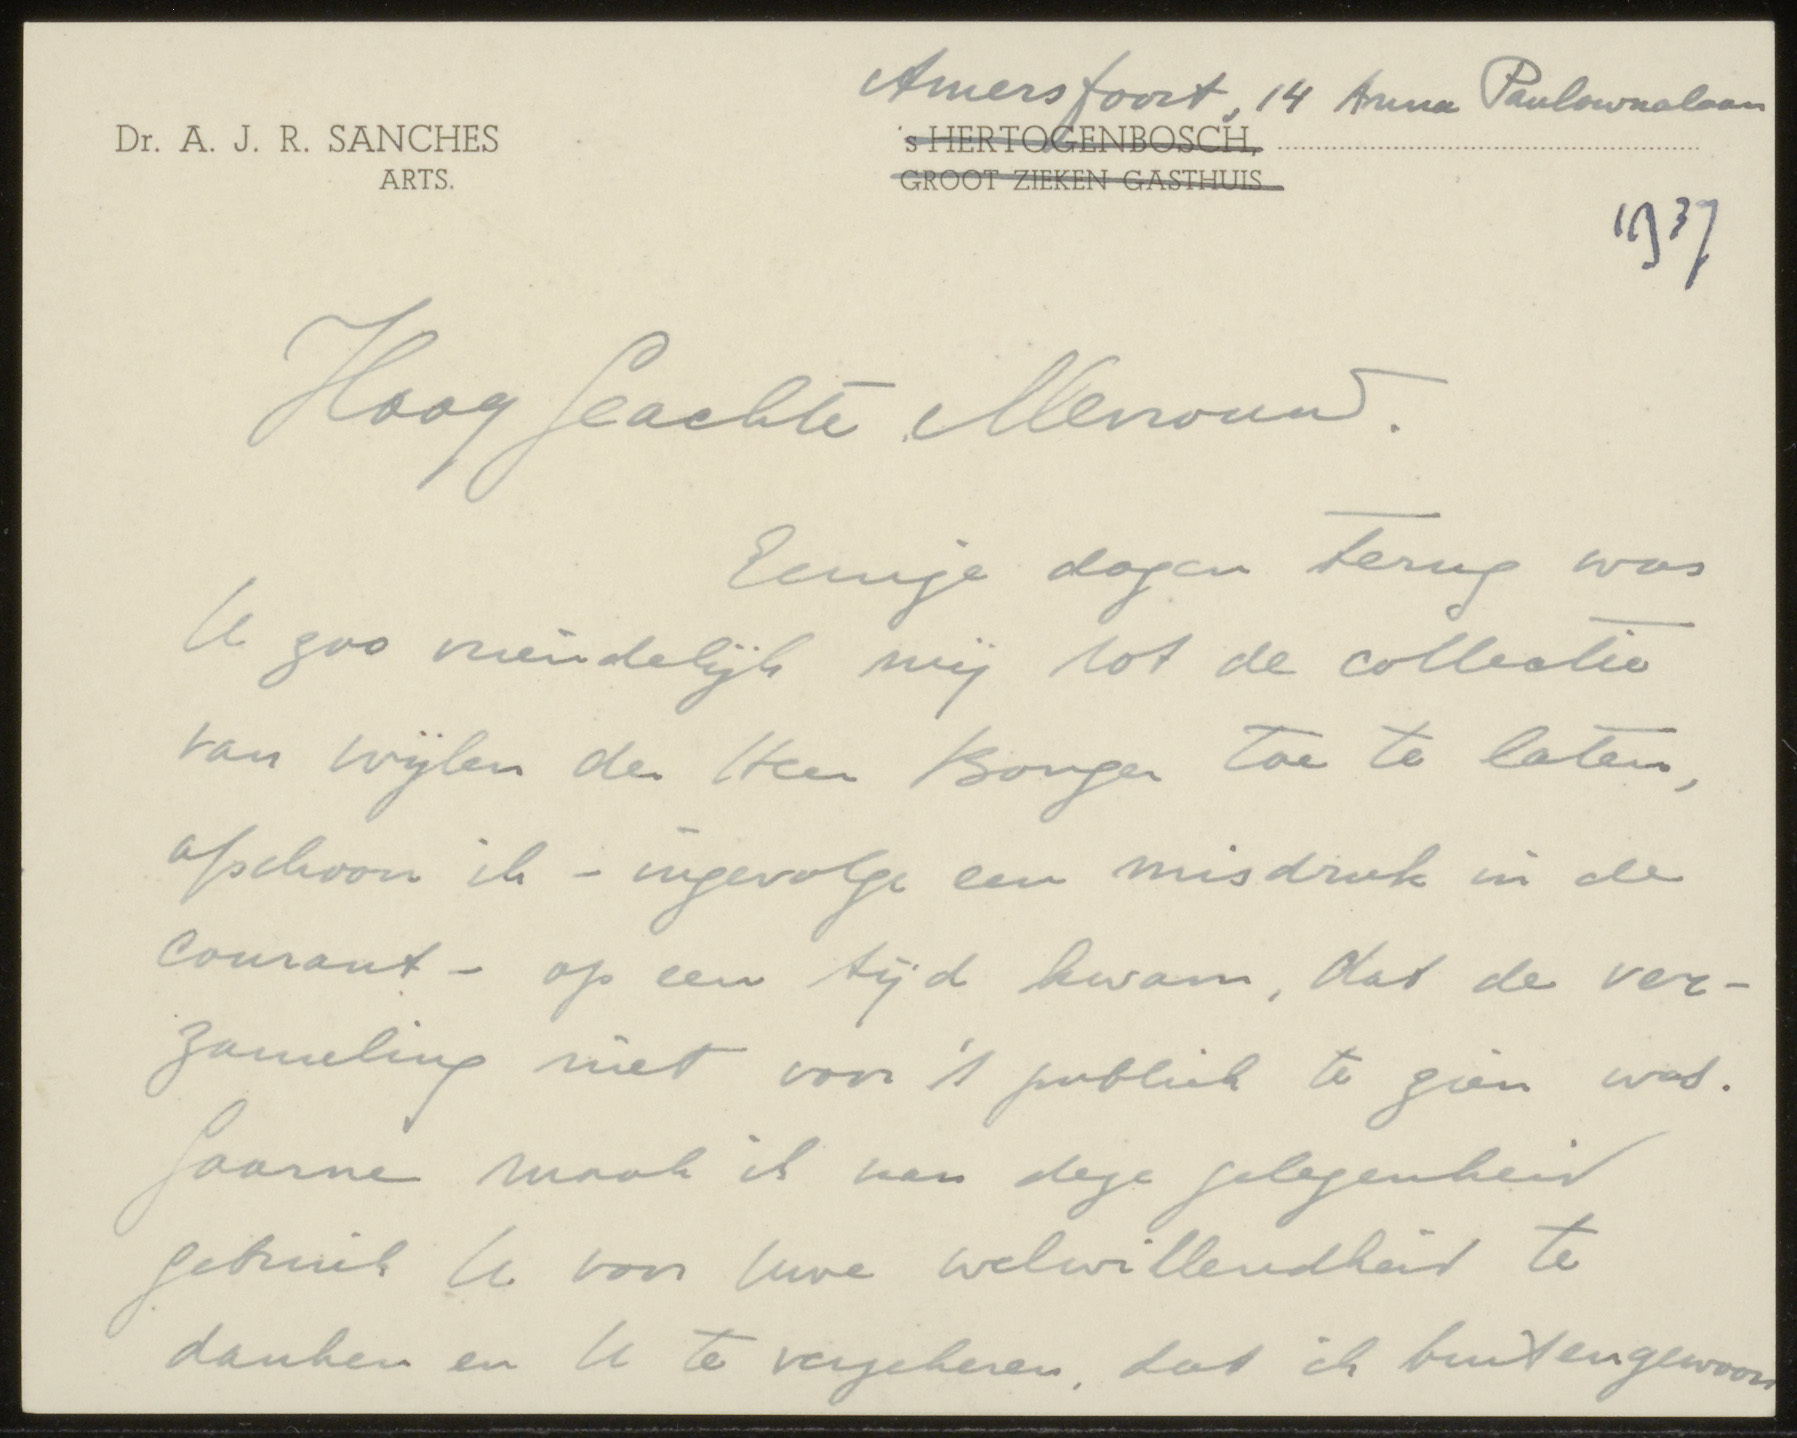 Amersfoort, 14 Anna Paulownalaan
Dr. A. J. R. SANCHES
ARTS.
's HERTOGENBOSCH,
GROOT ZIEKEN GASTHUIS
1937
Hoog Geachte Mevrouw.
Eenige dagen terug was
U zoo vriendelijk mij tot de collectie
van wijlen den Heer Bonger toe te laten,
ofschoon ik - ingevolge een misdruk in de
courant - op een tijd kwam, dat de ver-
zameling niet voor 't publiek te zien was.
Gaarne maak ik van deze gelegenheid
gebruik U voor Uwe welwillendheid te
danken en U te verzekeren, dat ik buitengewoon